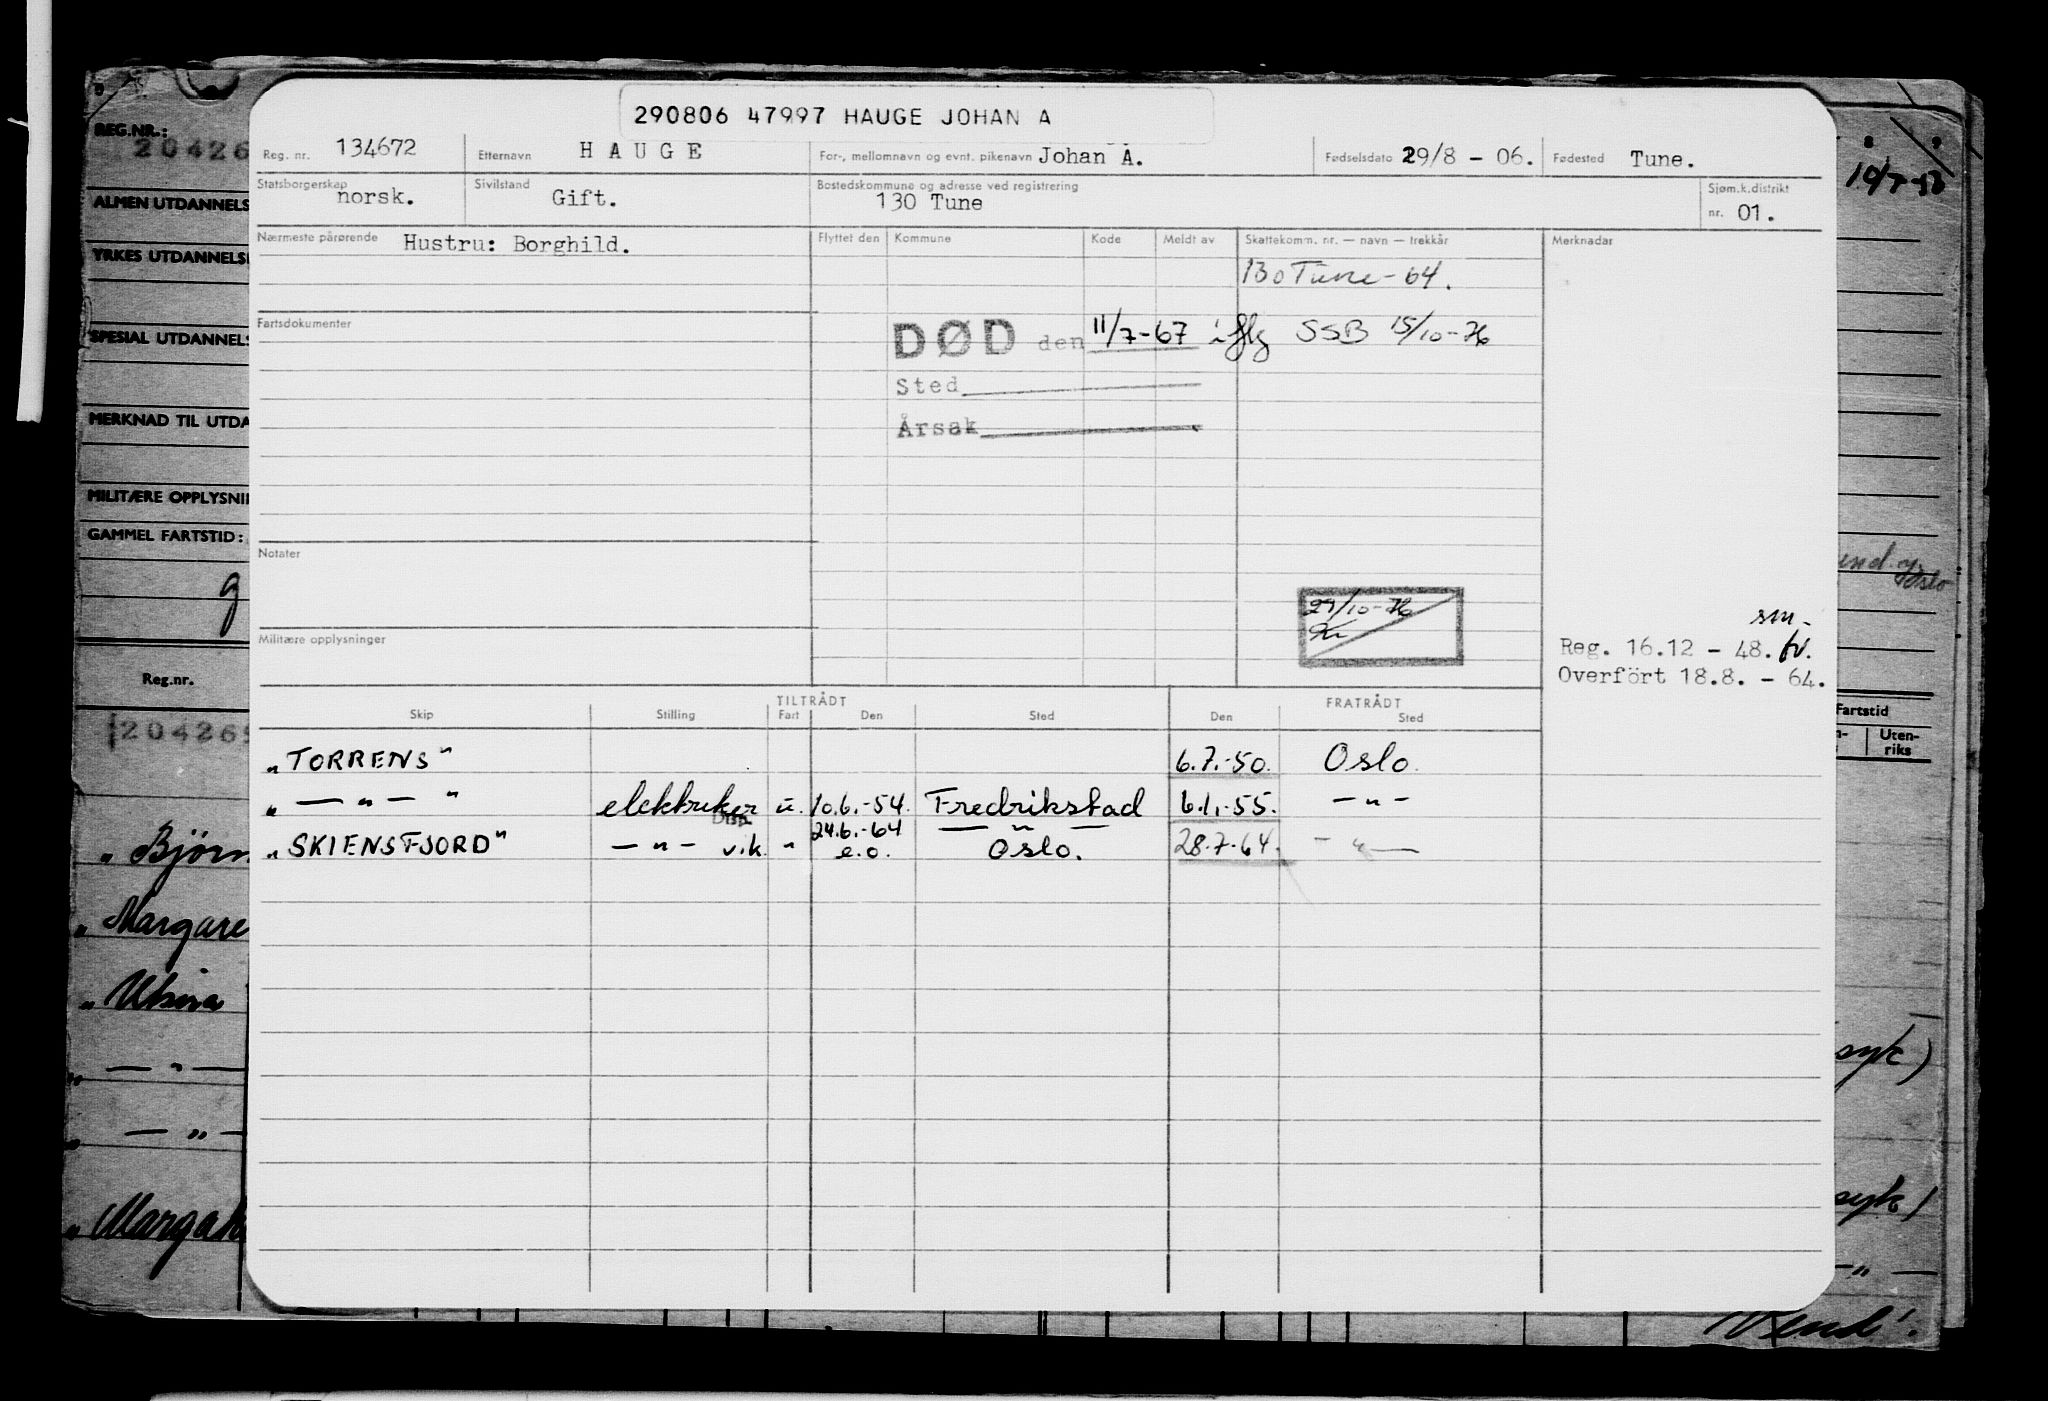 290806 47997 HAUGE JOHAN A
REG.NR.:
20426
Reg. nr. 134672 Etternavn HAUGE For-, mellomnavn og evnt. pikenavn Johan A. Fødselsdato 29/8 - 06. Fødested Tune.
Statsborgerskap norsk. Sivilstand Gift. Bostedskommune og adresse ved registrering 130 Tune Sjøm.k.distrikt nr. 01.
ALMEN UTDANNELS
Nærmeste pårørende Hustru: Borghild. Flyttet den Kommune Kode Meldt av Skattekomm. nr. — navn — trekkår Merknadar
YRKES UTDANNELSE
130 Tune - 64.
Fartsdokumenter
SPESIAL UTDANNELS
DØD den 11/7-67 iflg SSB 15/10-76
Sted
Årsak
MERKNAD TIL UTDA
MILITÆRE OPPLYSNI
GAMMEL FARTSTID:
Notater
g
29/10-76
sm.
Militære opplysninger
Reg. 16.12 - 48.
Overfört 18.8. - 64.
Reg.nr.
TILTRÅDT FRATRÅDT
Skip Stilling Fart Den Sted Den Sted
Fartstid
Uten-
riks
20426
"TORRENS" 6.7.-50. Oslo.
" — " — " elektriker u. 10.6.-54. Fredrikstad 6.1.-55. — " —
Disp. 24.6.-64 — " —
"SKIENSFJORD" — " — vik. " e.o. Oslo. 28.7-64. — " —
"Bjørn
"Margare
"Ukina
syk)
" — " —
" — " —
syk)
"Margah
— " —
Vend!